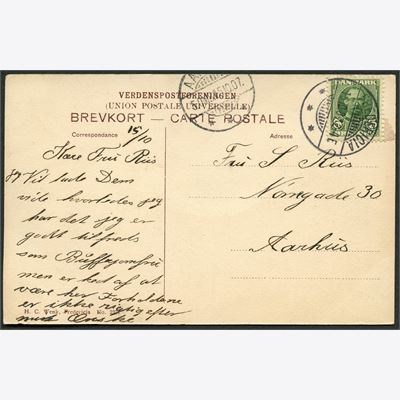 VERDENSPOSTFORENINGEN
(UNION POSTALE UNIVERSELLE)
BREVKORT — CARTE POSTALE
Correspondance
Adresse
DANMARK
15/10
Kære Fru Riis
Vil lade Dem
vide hvorledes jeg
har det jeg er
godt tilfreds
som Büffetjomfru
men er ked af at
være her Forholdene
er ikke rigtig efter
mit Ønske
Fru S Riis
Nørregade 30
Aarhus
H. C. Wenk, Fredericia No.